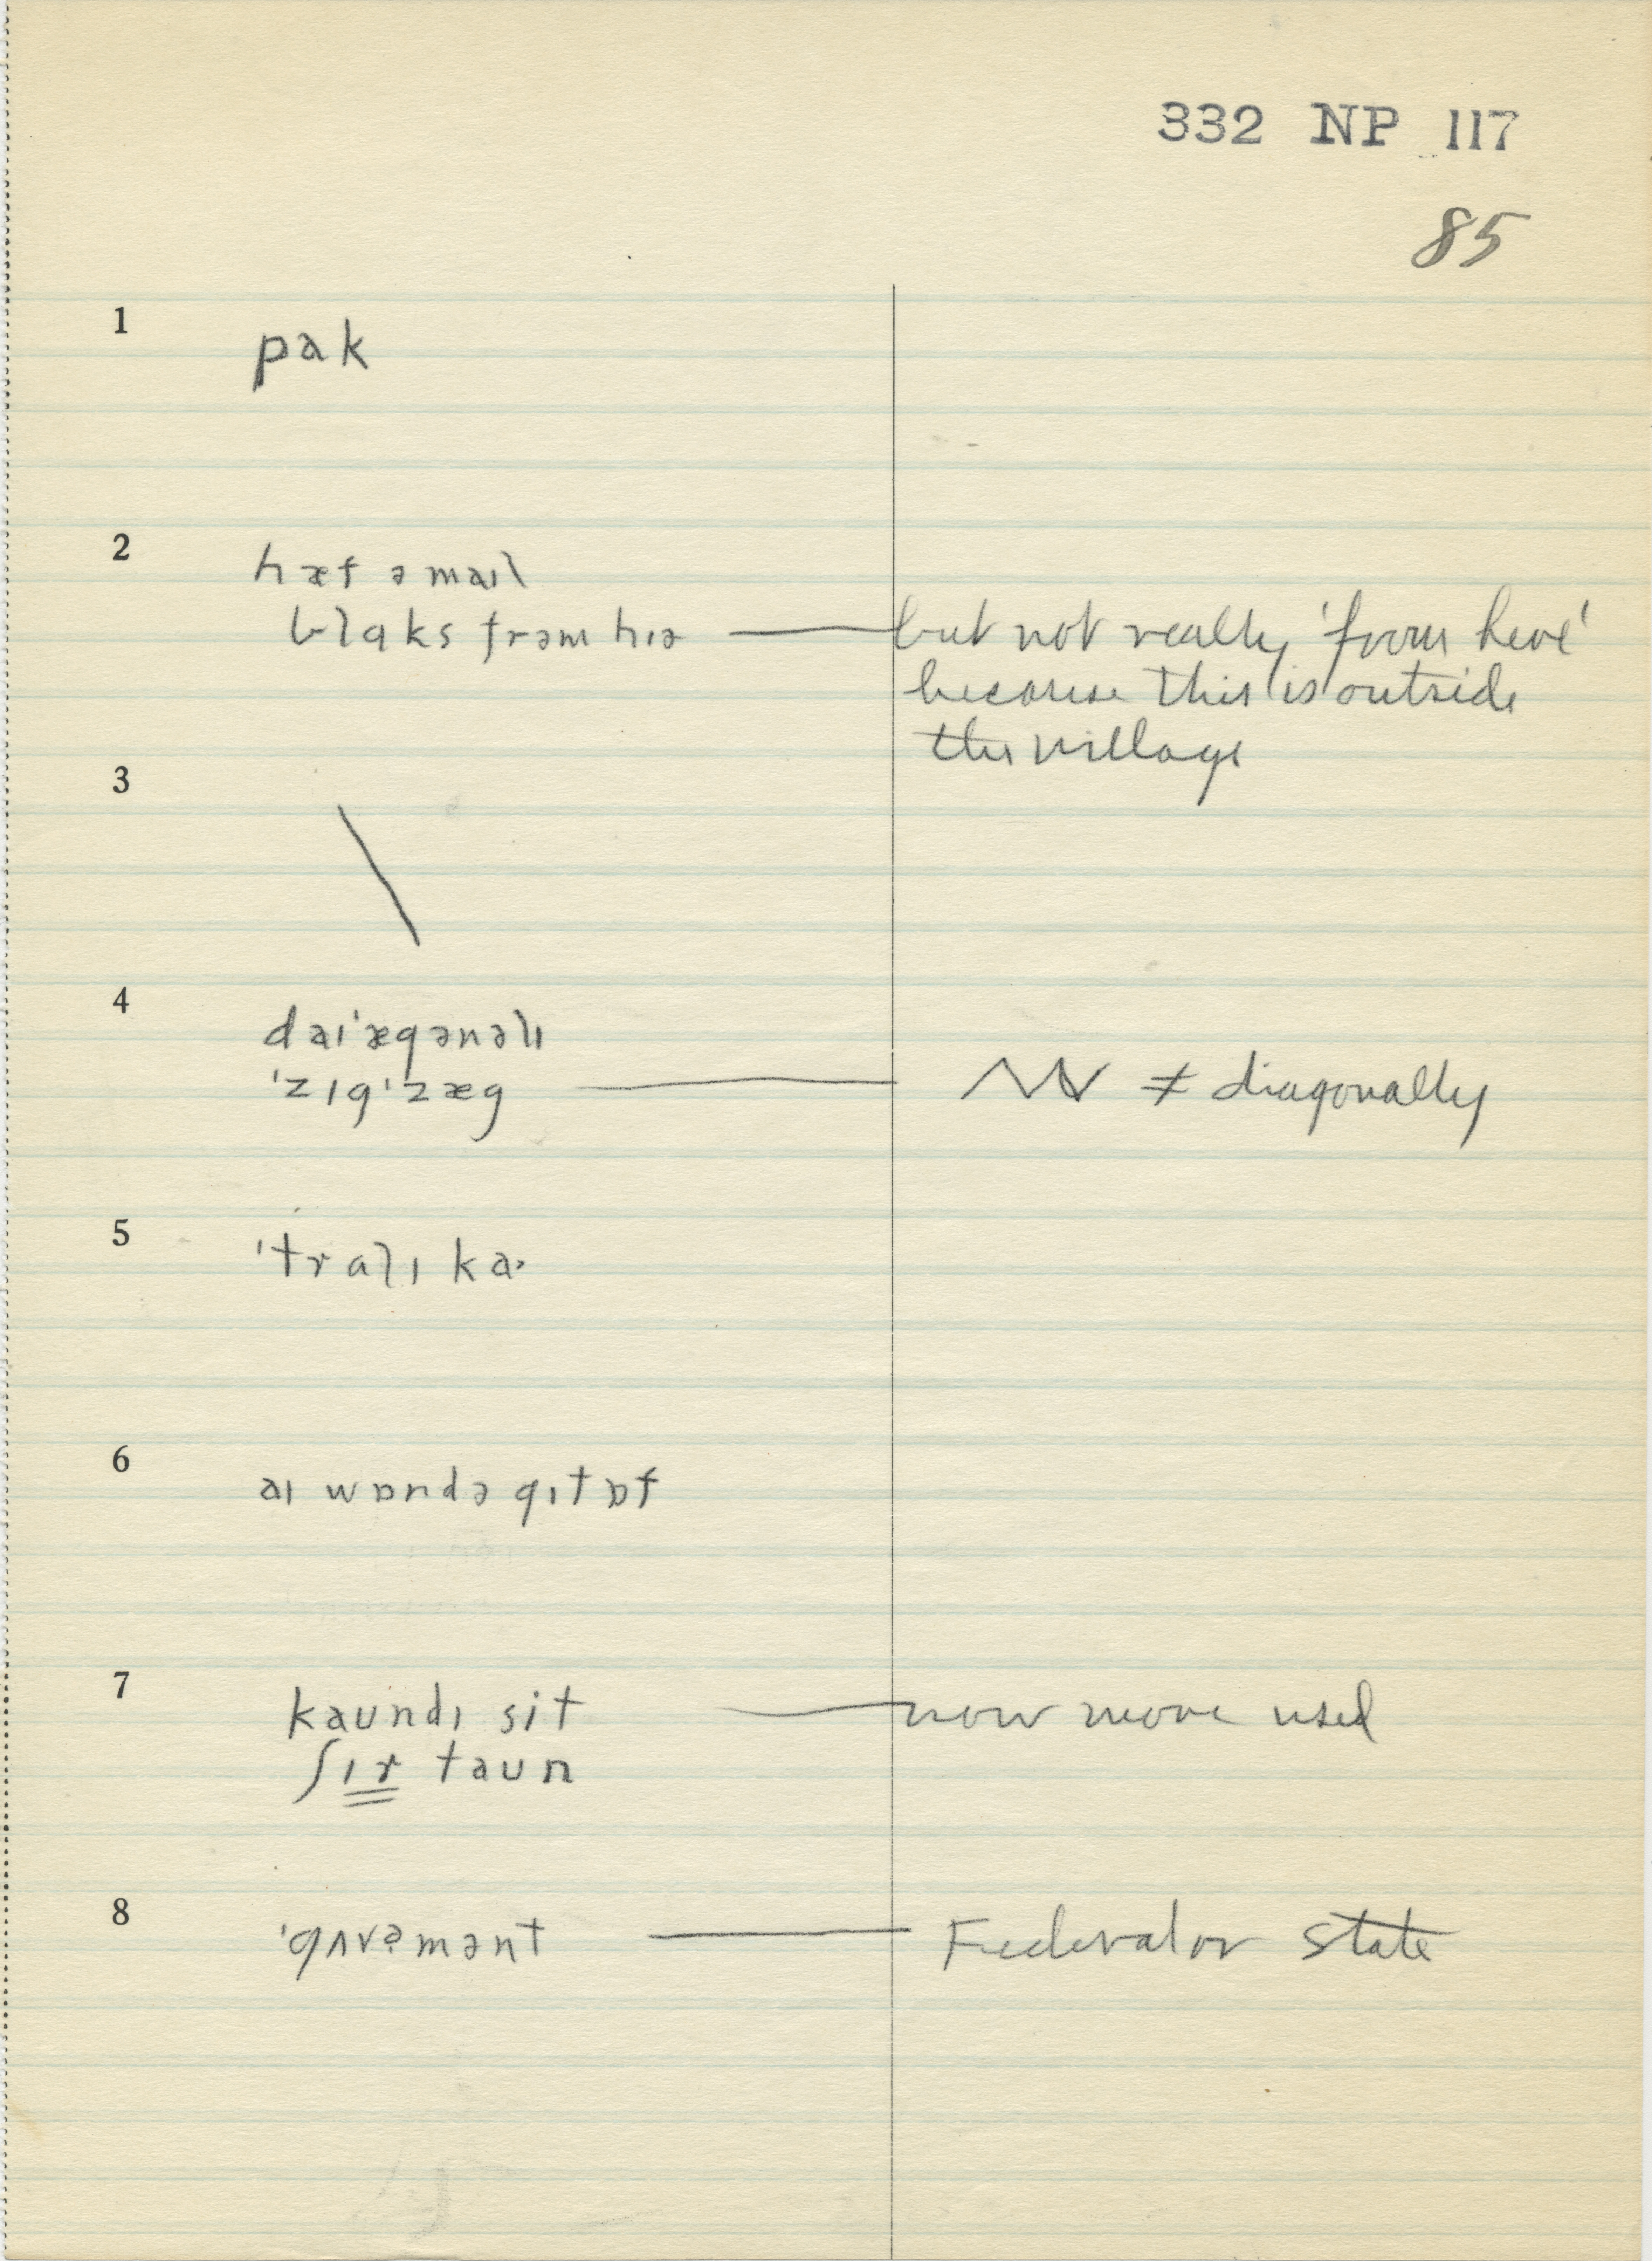 332 NP 117
85
1 pak
2 hæf ə maɪl
blɑks frəm hɪə — but not really 'from here'
because this is outside
the village
3 \
4 daɪ'ægənəlɪ
'zɪg'zæg — ≠ diagonally
5 'trɑlɪ kaˑ
6 aɪ wɒndə gɪt ɒf
7 kaundɪ sit — now more used
ʃɪr taun
8 'gʌvəmənt — Federal or State